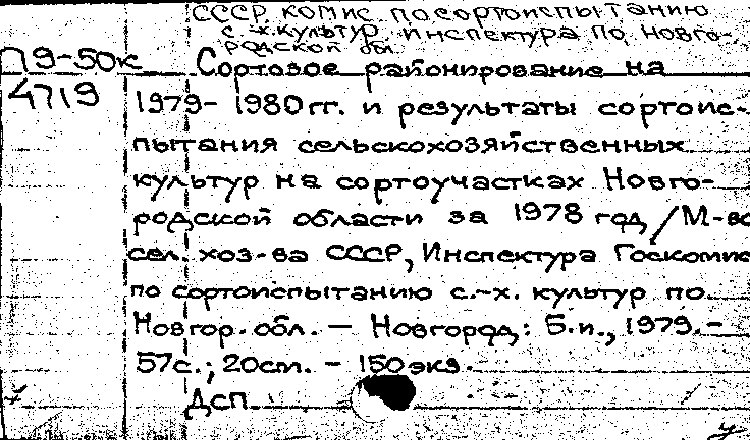 СССР. комис. по сортоиспытанию
с.-х. культур. инспектура по Новго-
родской обл.
П9-50к Сортовое районирование на
4719 1979-1980 гг. и результаты сортоис-
пытания сельскохозяйственных
культур на сортоучастках Новго-
родской области за 1978 год / М-во
сел. хоз-ва СССР, Инспектура Госкомис
по сортоиспытанию с.-х. культур по
Новгор. обл. — Новгород: Б.и., 1979.-
57с.; 20см. - 150 экз.
ДСП.